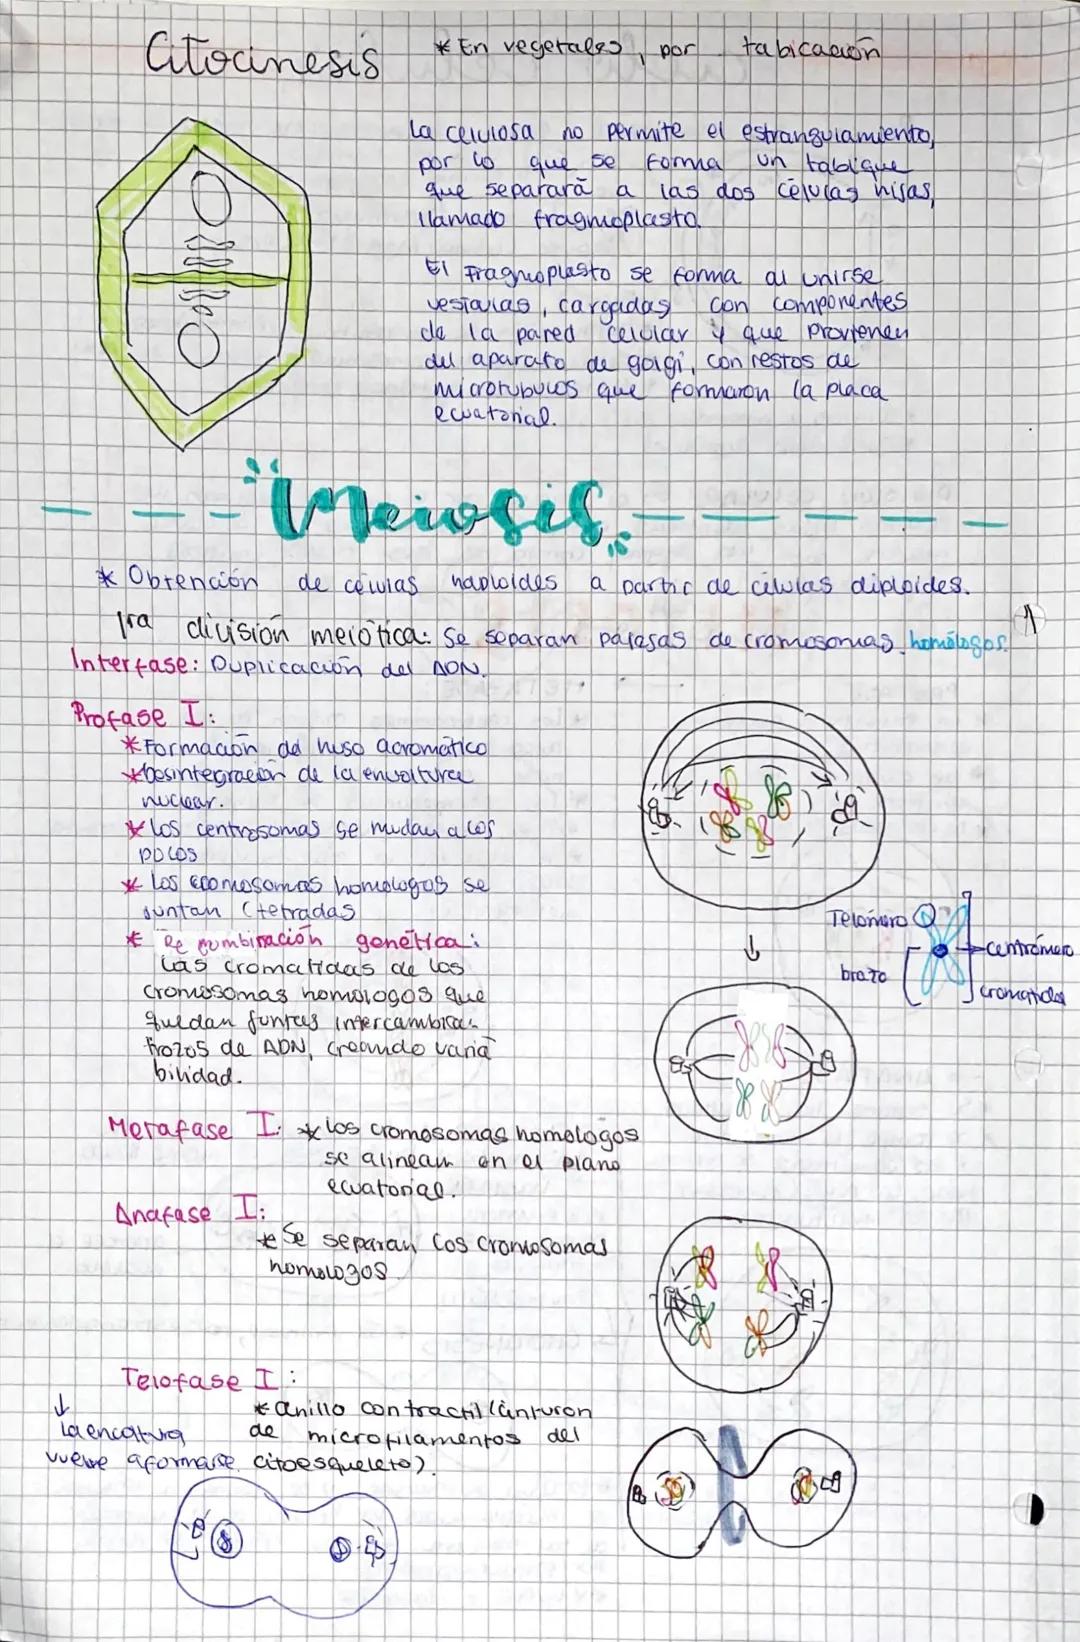 Citocinesis
* En vegetales, por tabicación
La celulosa no permite el estrangulamiento,
por lo que se forma un tabique
que separará a las dos células hijas,
llamado fragmoplasto.
El Fragmoplasto se forma al unirse
vesículas, cargadas con componentes
de la pared celular y que provienen
del aparato de golgi, con restos de
microtubulos que formaron la placa
ecuatorial.
Meiosis
* Obtención de células haploides a partir de células diploides.
1ra división meiótica: Se separan parejas de cromosomas homólogos.
Interfase: Duplicación del ADN.
Profase I:
* Formación del huso acromático
* Desintegración de la envoltura
nuclear.
* Los centrosomas se mudan a los
polos
* Los cromosomas homologos se
juntan (tetradas
* Recombinación genética:
Las cromatidas de los
cromosomas homologos que
quedan juntas intercambian
trozos de ADN, creando varia
bilidad.
Telómero
centrómero
brazo
cromatida
Metafase I: * Los cromosomas homologos
se alinean en el plano
ecuatorial.
Anafase I:
* Se separan los cromosomas
homologos
Telofase I:
* anillo contractil (cinturon
de microfilamentos del
citoesqueleto).
La envoltura
vuelve a formarse